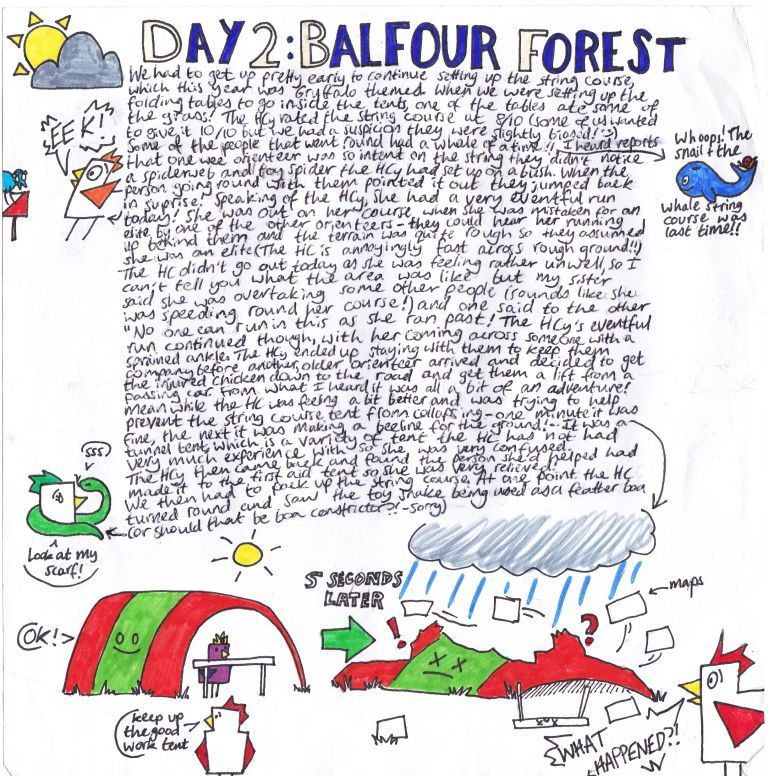 DAY 2: BALFOUR FOREST
We had to get up pretty early to continue setting up the string course,
which this year was Gryffalo themed. When we were setting up the
folding tables to go inside the tents one of the tables ate some of
the grass! The HCy rated the string course at 8/10 (some of us wanted
to give it 10/10 but we had a suspicion they were slightly biased! :-))
Some of the people that went round had a whale of a time!! I heard reports
that one wee orienteer was so intent on the string they didn't notice
a spiderweb and toy spider the HCy had set up on a bush. When the
person going round with them pointed it out they jumped back
in suprise! Speaking of the HCy, she had a very eventful run
today! She was out on her course when she was mistaken for an
elite by one of the other orienteers - they could hear her running
up behind them and the terrain was quite rough so they assumed
she was an elite (The HC is annoyingly fast across rough ground!!)
The HC didn't go out today as she was feeling rather unwell, so I
can't tell you what the area was like, but my sister
said she was overtaking some other people (sounds like she
was speeding round her course!) and one said to the other
"No one can run in this as she ran past! The HCy's eventful
run continued though, with her coming across someone with a
sprained ankle. The HCy ended up staying with them to keep them
company before another, older orienteer arrived and decided to get
the injured chicken down to the road and get them a lift from a
passing car. From what I heard it was all a bit of an adventure!
Meanwhile the HC was feeling a bit better and was trying to help
prevent the string course tent from collapsing - one minute it was
fine, the next it was making a beeline for the ground! - It was a
tunnel tent, which is a variety of tent the HC has not had
very much experience with so she was very confused.
The HCy then came back and found the person she'd helped had
made it to the first aid tent so she was very relieved!
We then had to pack up the string course. At one point the HC
turned round and saw the toy snake being used as a feather boa
(or should that be boa constrictor?! - sorry)
EEK!
Whoops! The
snail + the
whale string
course was
last time!!
sss
Look at my
scarf!
OK!
keep up
the good
work tent
5 SECONDS
LATER
!
?
maps
WHAT
HAPPENED?!